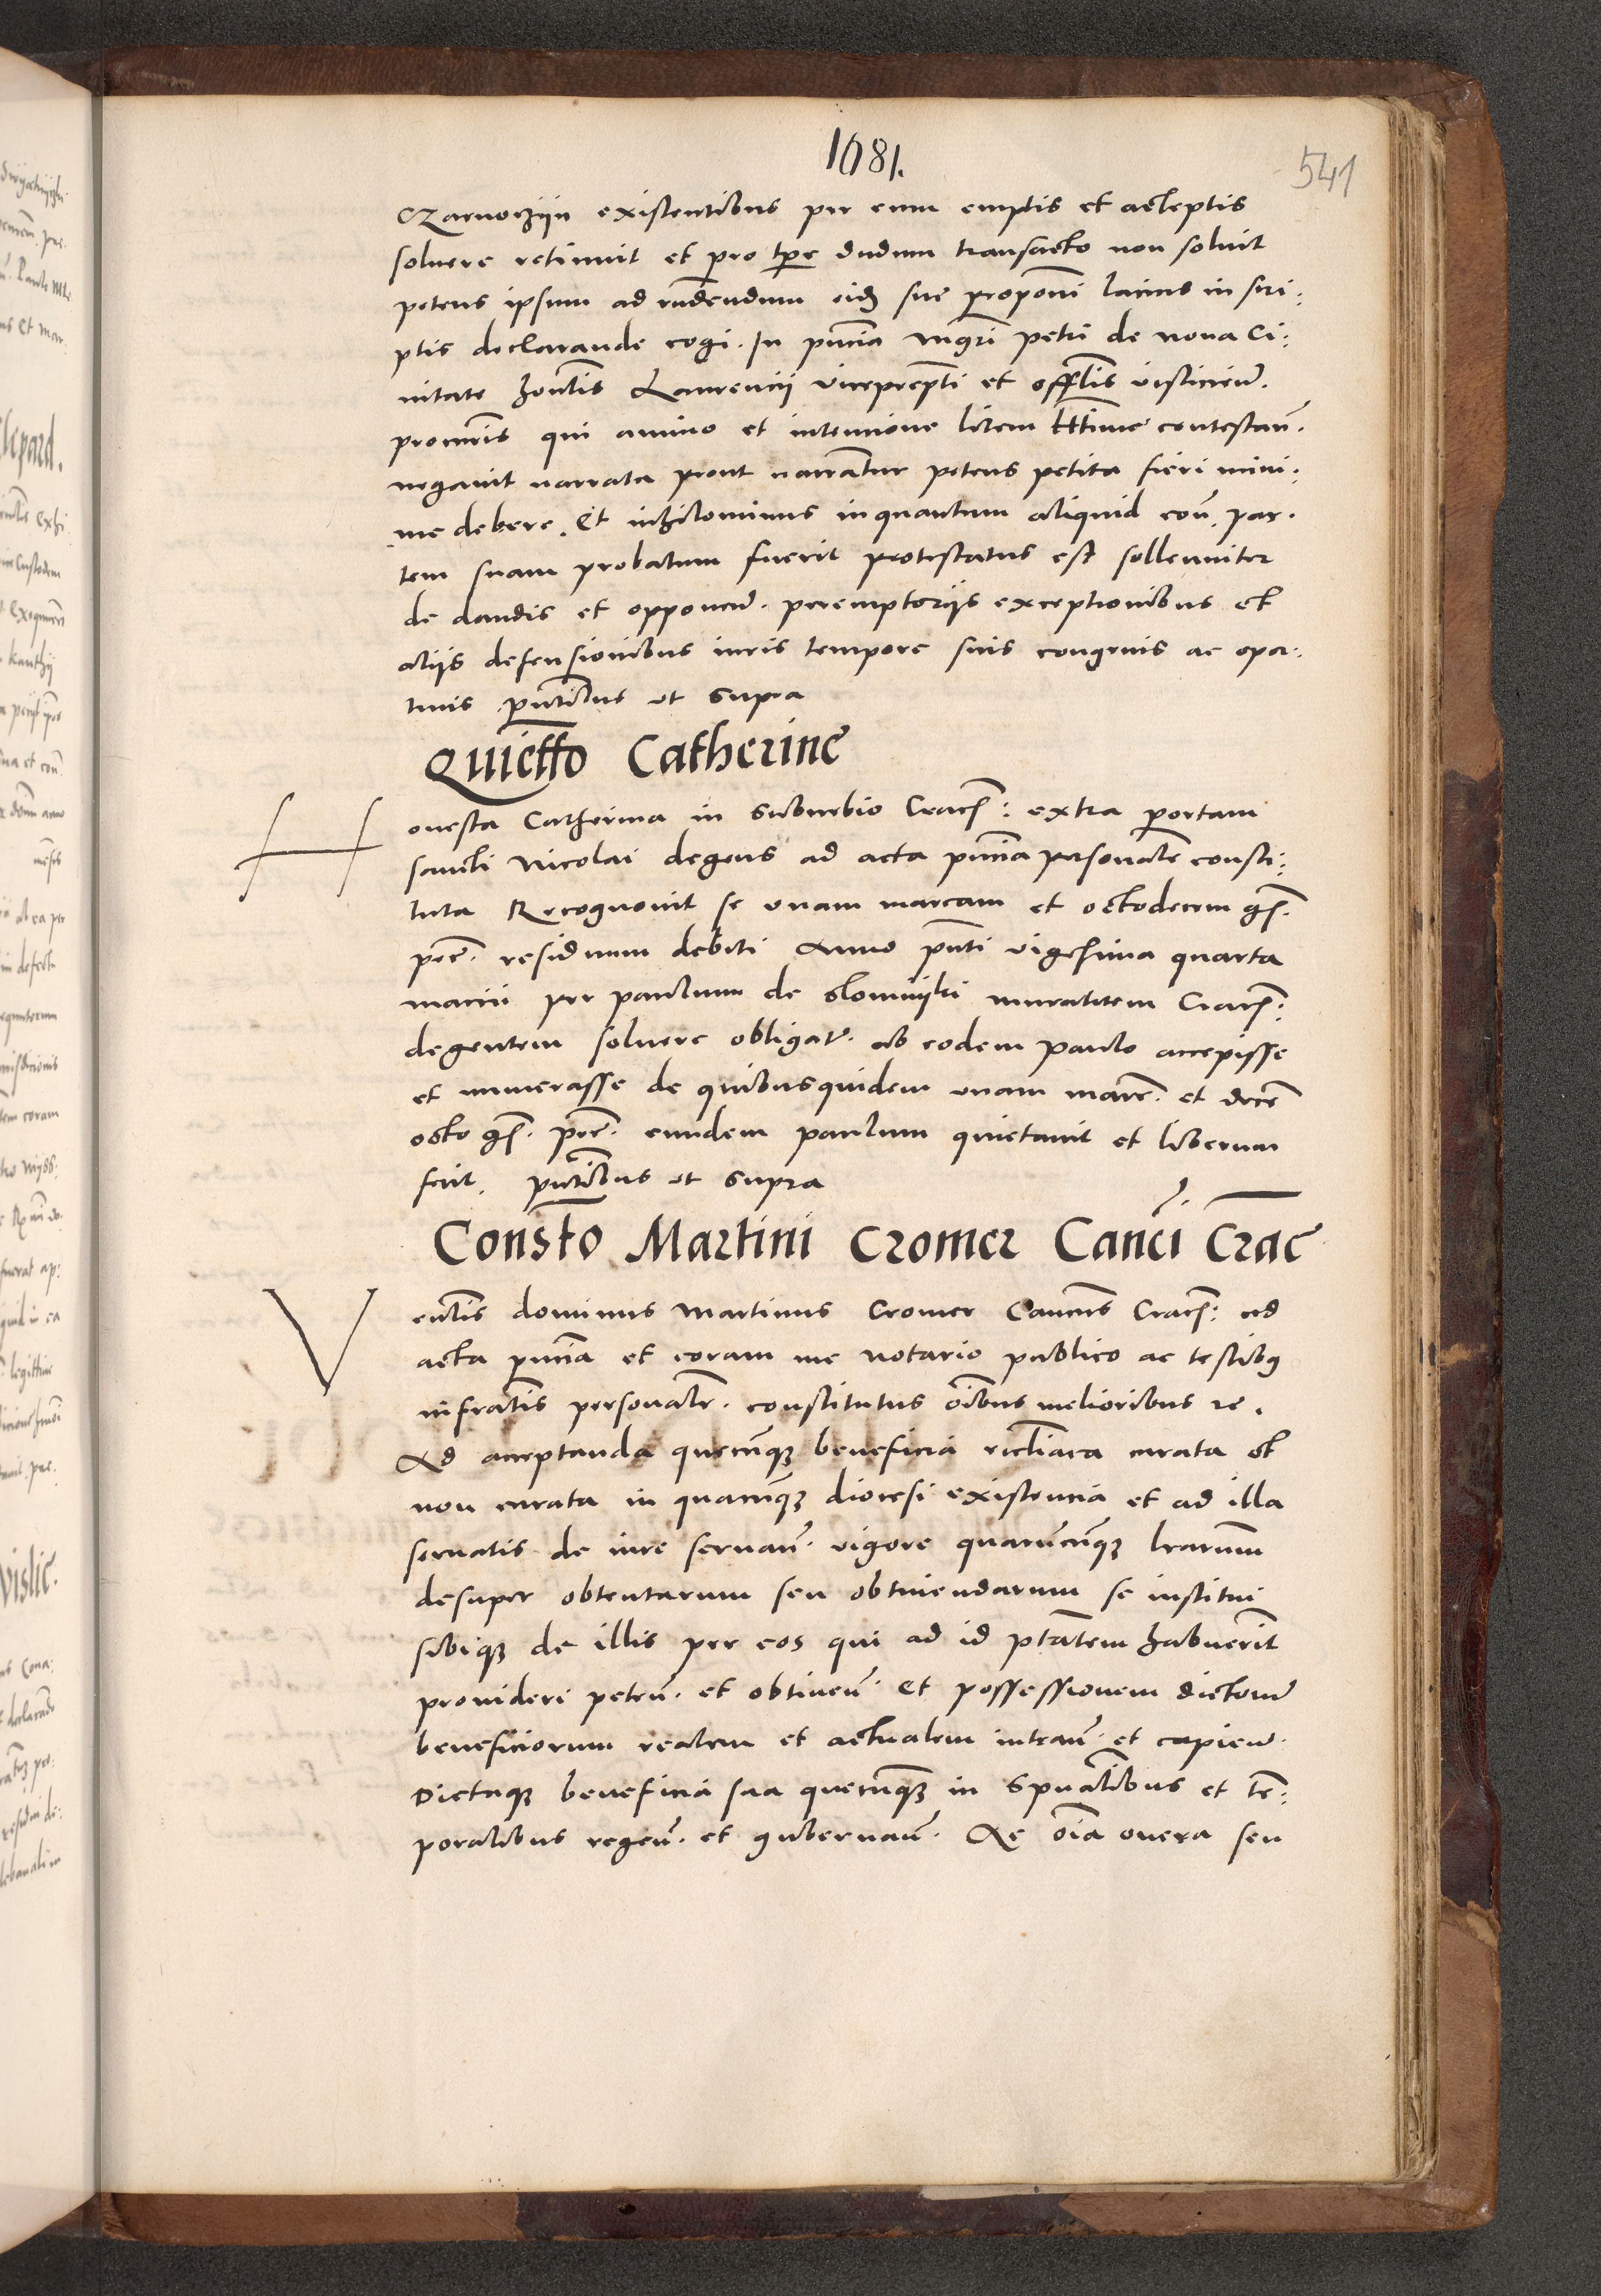 1681.
541
Czarnochijn existentibus per eum emptis et acceptis
soluere retinuit et pro tpe dudum transacto non soluit
petens ipsum ad rndendum eidem sue proponi lacius in scri:
ptis declarande cogi. In pncia mgri petri de noua Ci:
uitate honlis Laurencii viceprepti et offlis visliciens.
procuris qui animo et intencione litem lttime contestan.
negauit narrata prout narrantur petens petita fieri mini:
me debere. Et nihilominus inquantum aliquid con. par.
tem suam probatum fuerit protestatus est sollenniter
de dandis et opponend. peremptoriis exceptionibus et
aliis defensionibus iuris tempore suis congruis ac opor.
tunis pntibus ut supra
Quietto Catherine
Honesta Catherina in suburbio Cracs: extra portam
sancti Nicolai degens ad acta pncia personalr consti:
tuta Recognouit se vnam marcam et octodecem gs.
pec. residuum debiti Anno pnti vigesima quarta
marcii per paulum de slomnijki muratitem Cracs:
degentem soluere obligat. ab eodem paulo accepisse
et numerasse de quibusquidem vnam marc. et dece
octo gs. pec. eundem paulum quietauit et liberum
fecit. pntibus ut supra
Consto Martini Cromer Canci Crac
Venlis dominus Martinus Cromer Cancus Cracs: ad
acta pncia et coram me notario publico ac testibus
infratis personalr. constitutus oibus melioribus re.
Ad acceptanda quecunque beneficia eccliaca curata et
non curata in quacunque diocesi existencia et ad illa
seruatis de iure seruan. vigore quarumcunque lrarum
desuper obtentarum seu obtinendarum se institui
sibique de illis per eos qui ad id ptatem habuerit
prouideri peten. et obtinen. et possessionem dictorum
beneficiorum realem et actualem intran. et capiend.
Dictaque beneficia sua quecunque in spualibus et tem:
poralibus regen. et gubernan. Ac oia onera seu